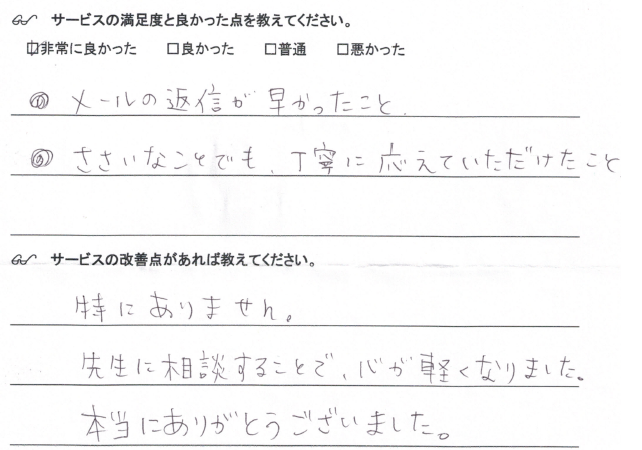 サービスの満足度と良かった点を教えてください。
☑非常に良かった □良かった □普通 □悪かった
① メールの返信が早かったこと.
② ささいなことでも、丁寧に応えていただけたこと
サービスの改善点があれば教えてください。
特にありません。
先生に相談することで、心が軽くなりました。
本当にありがとうございました。